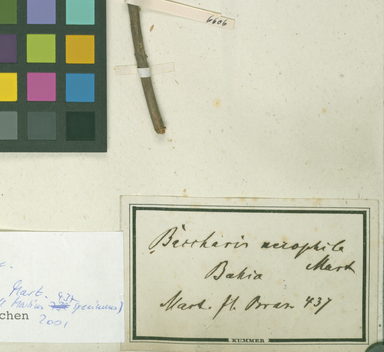 6606
Baccharis aerophila
Mart
Bahia
Mart. fl. Bras. 437
KUMMER
Mart.
437
chen
2001